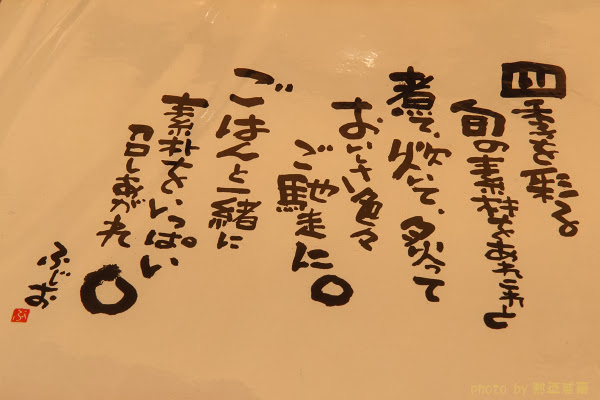 四季を彩る。
旬の素材をあれこれと
煮て、炊いて、炙って
おいしい色々
ご馳走に。
ごはんと一緒に
素朴をいっぱい
召しあがれ。
ふじお
photo by